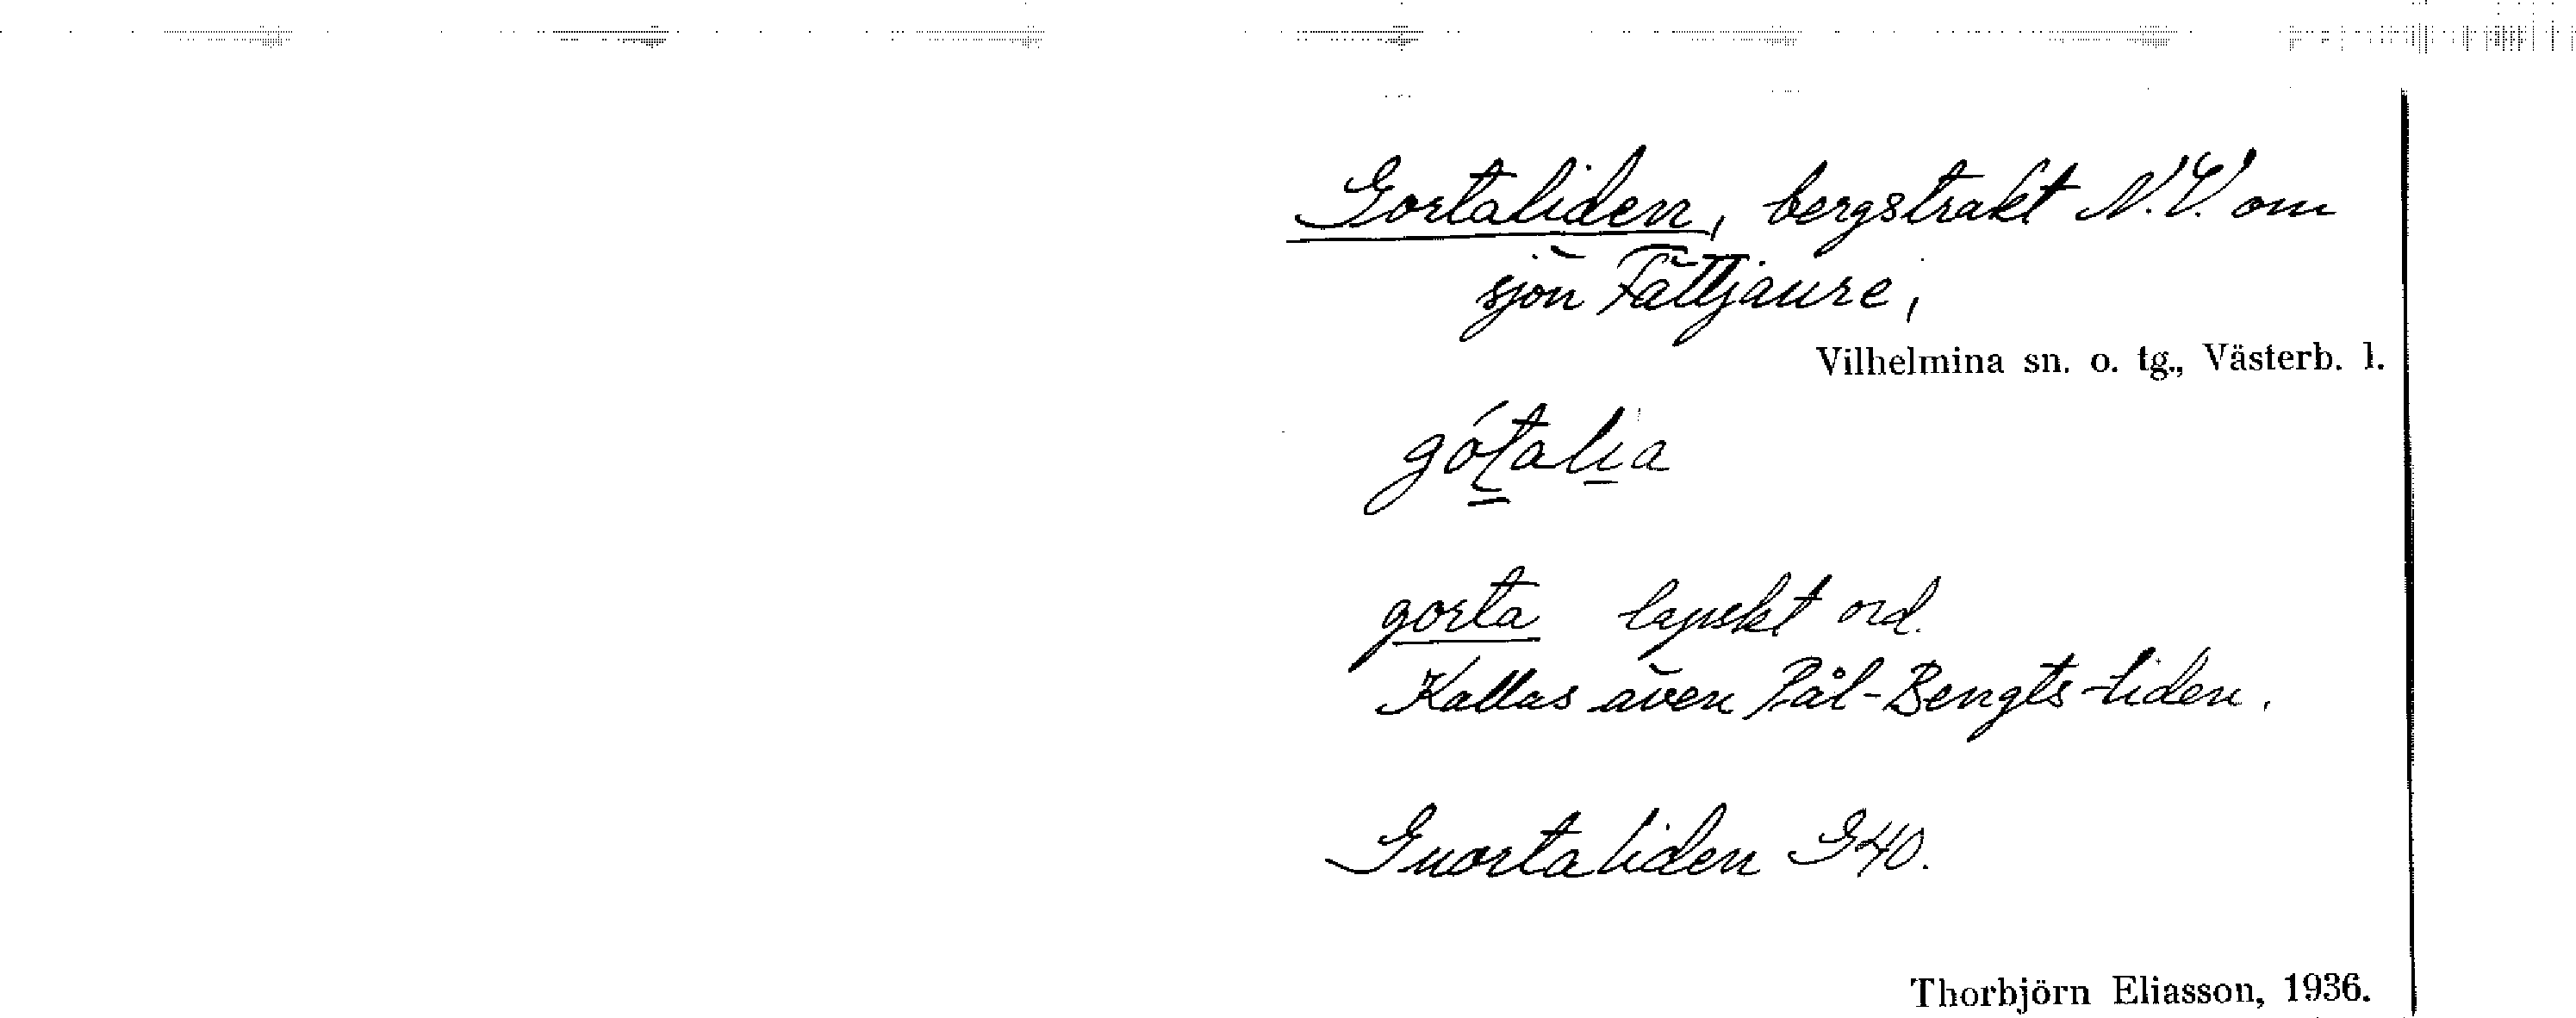 Gortaliden, bergstrakt N.V. om
sjön Fättjaure,
Vilhelmina sn. o. tg., Västerb. l.
gótalia
gorta lapskt ord.
Kallas även Pål-Bengts-liden.
Guortaliden G40.
Thorbjörn Eliasson, 1936.